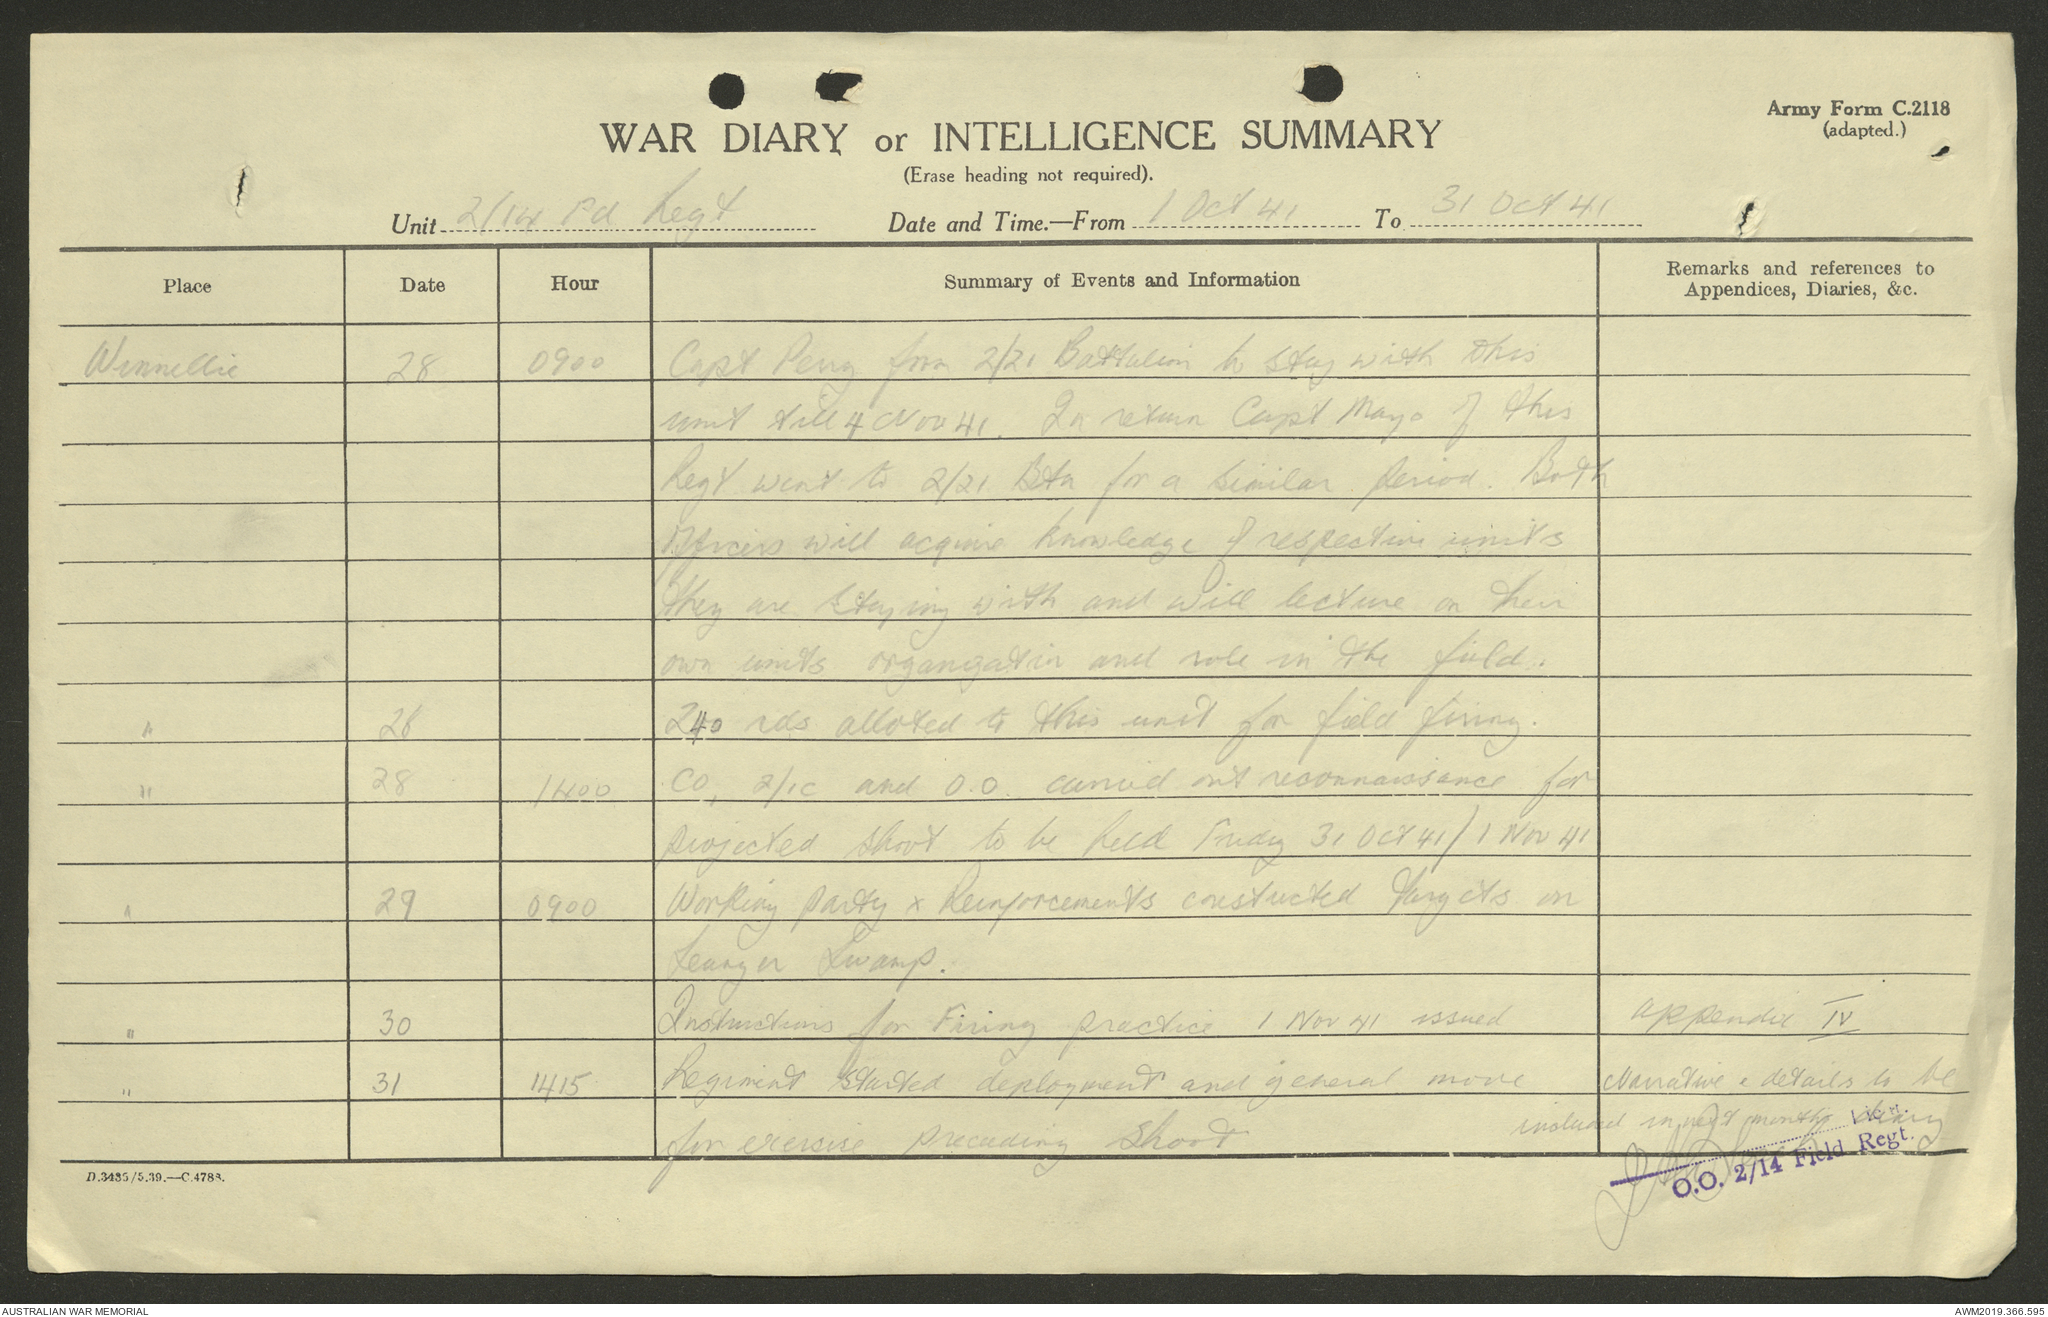 Army Form C.2118
(adapted.)
WAR DIARY or INTELLIGENCE SUMMARY
(Erase heading not required).
Unit 2/14 Fd Regt Date and Time.—From 1 Oct 41 To 31 Oct 41
Place Date Hour Summary of Events and Information Remarks and references to Appendices, Diaries, &c.
Winnellie 28 0900 Capt Perry from 2/21 Battalion to stay with this
unit till 4 Nov 41. In return Capt Mayo of this
Regt went to 2/21 Btn for a similar period. Both
officers will acquire knowledge of respective units
they are staying with and will lecture on their
own units organization and role in the field.
" 28 240 rds alloted to this unit for field firing.
" 28 1400 CO, 2/ic and O.O. carried out reconnaissance for
projected shoot to be held Friday 31 Oct 41 / 1 Nov 41
" 29 0900 Working party x Reinforcements constructed targets on
Swamp.
" 30 Instructions for Firing practice 1 Nov 41 issued appendix IV
" 31 1415 Regiment started deployment and general move Narrative & details to be
for exersise preceeding shoot included in next months diary
Lieut.
O.O. 2/14 Field Regt.
D.3435/5.39.—C.4788.
AUSTRALIAN WAR MEMORIAL AWM2019.366.595